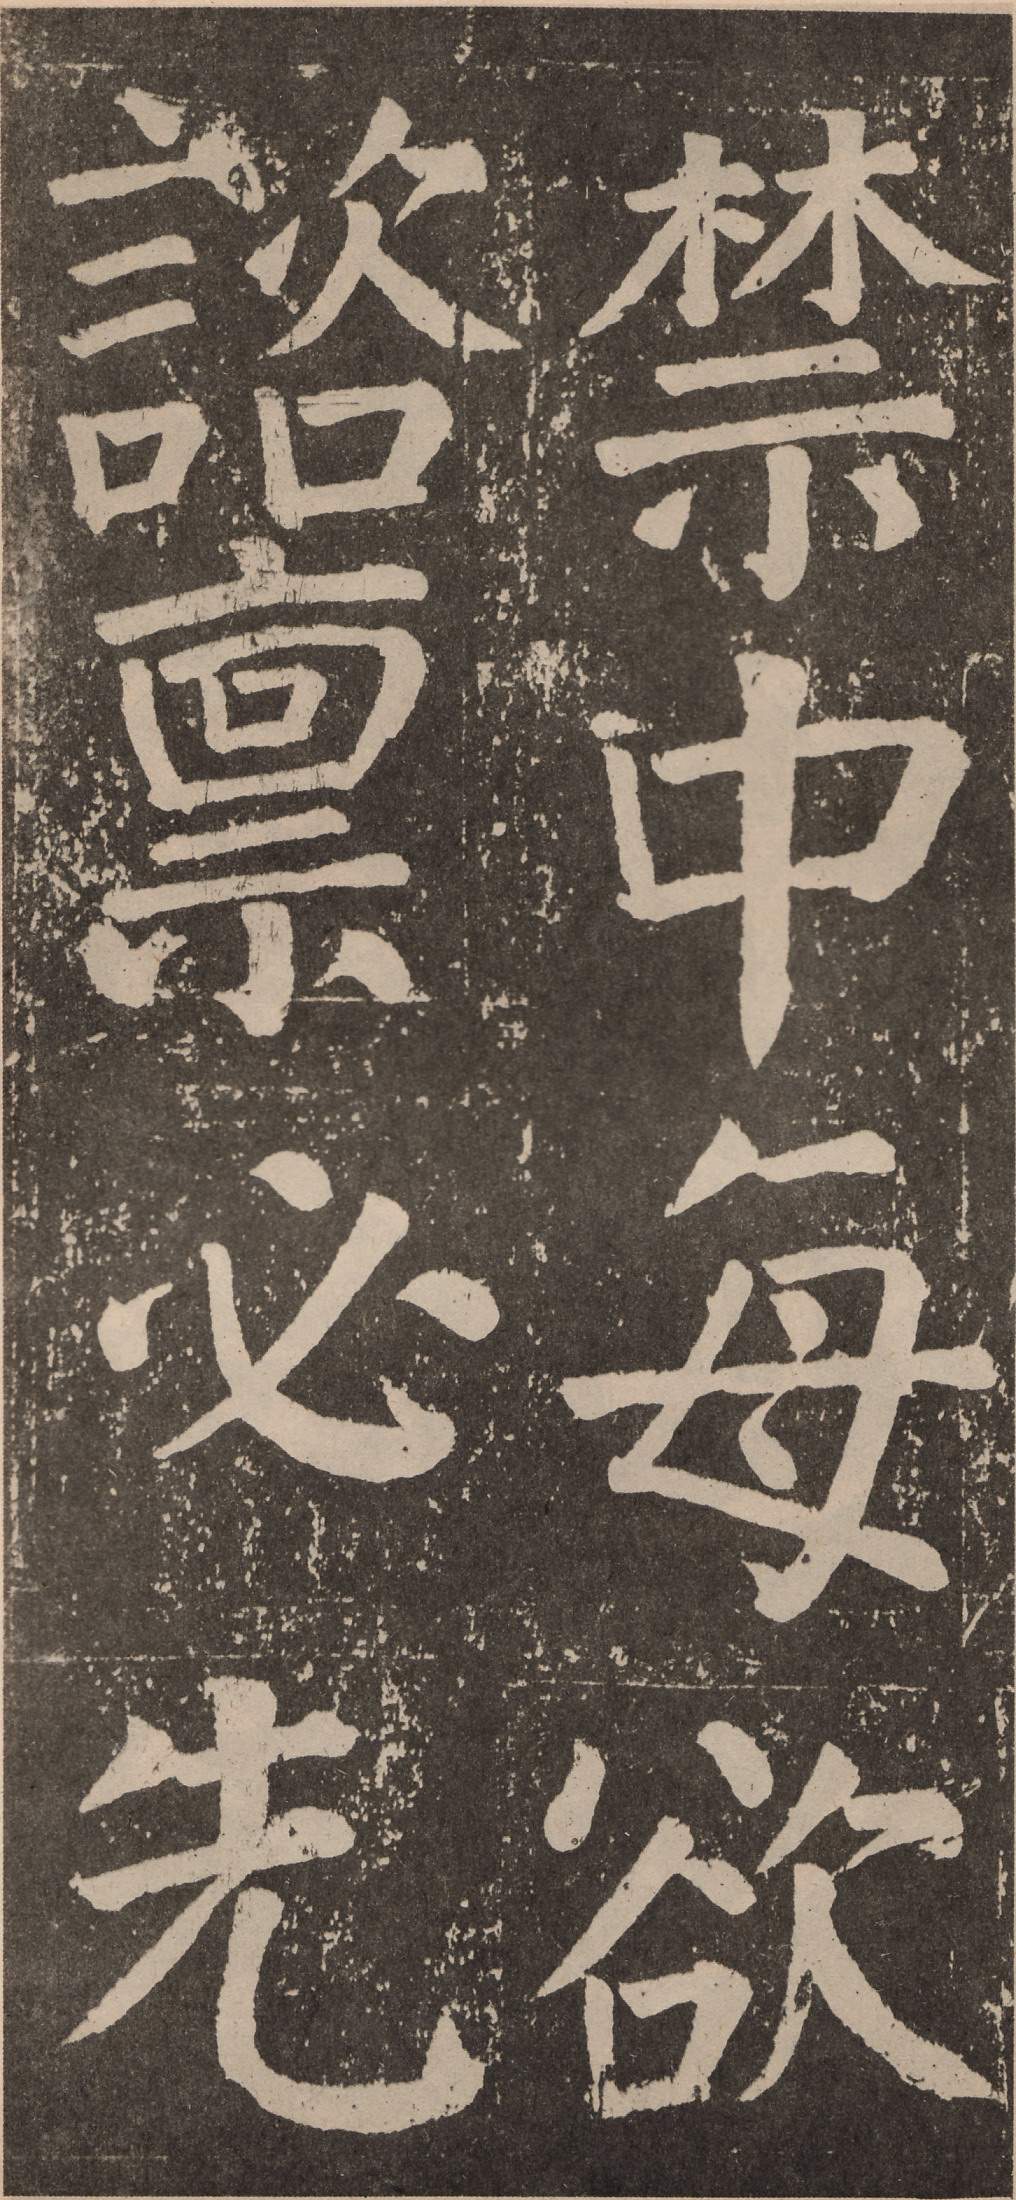 禁中每欲
諮禀必先